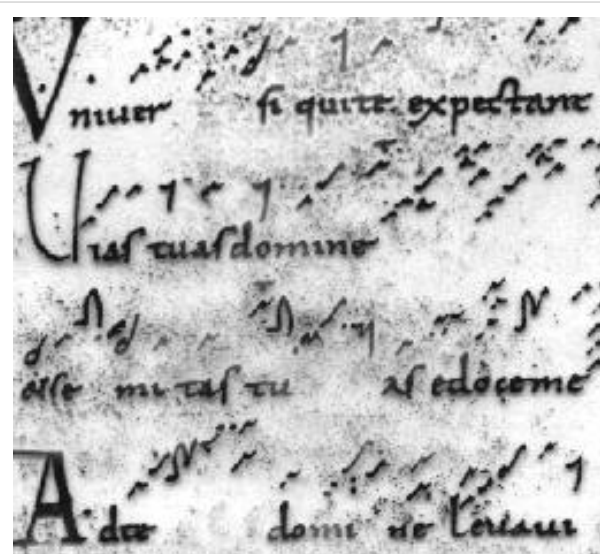 Univer si qui te expectant
Uias tuas domine
 mi tas tu as edoceme
Ad te domi ne levavi